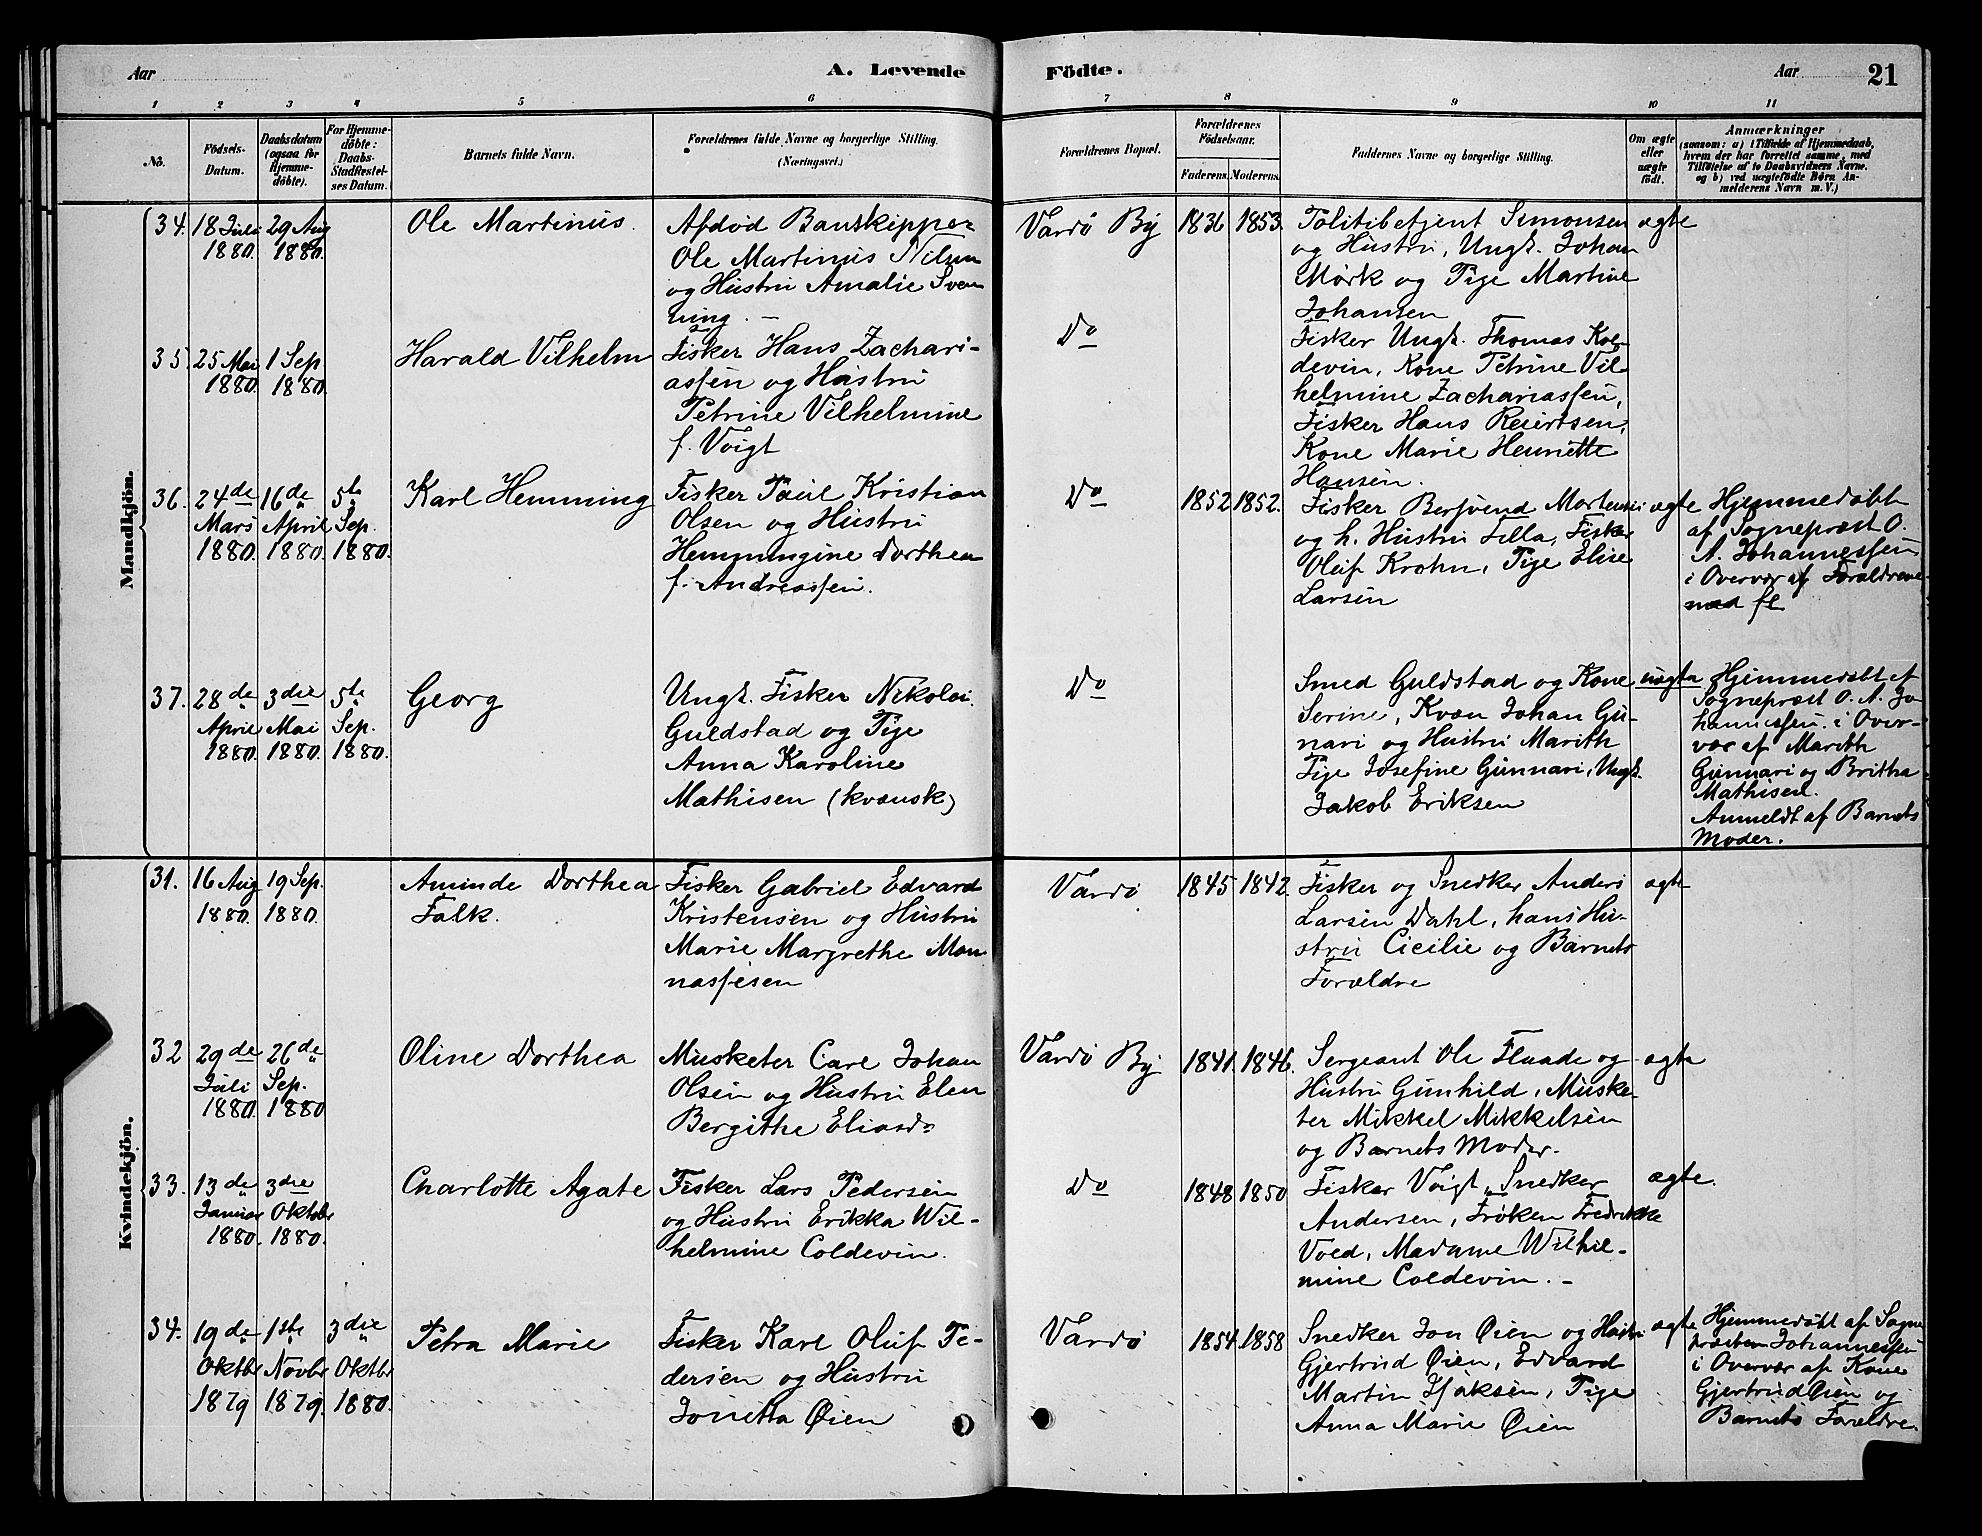 Aar
A. Levende
Födte.
Aar
21
1 2 3 4 5 6 7 8 9 10 11
No.
Födsels-
Datum.
Daabsdatum
(ogsaa for
Hjemme-
döbte).
For Hjemme-
döbte:
Daabs-
Stadfæstel-
ses Datum.
Barnets fulde Navn.
Forældrenes fulde Navne og borgerlige Stilling.
(Næringsvei.)
Forældrenes Bopæl.
Forældrenes
Födselsaar.
Faderens. Moderens.
Faddernes Navne og borgerlige Stilling.
Om ægte
eller
uægte
født.
Anmærkninger
(saasom: a) i Tilfælde af Hjemmedaab,
hvem der har forrettet samme, med
Tilföielse af to Daabsvidners Navne.
og b) ved uægtefødte Börn An-
melderens Navn m. V.)
Mandkjön.
34. 18 Juli
1880.
29 Aug
1880.
Ole Martinus.
Afdød Baatskipper
Ole Martinus Nilsen
og Hustru Amalie Sven
ning. –
Vardö By
1836 1853.
Politibetjent Simonsen
og Hustru, Ungk. Johan
Mörk og Pige Martine
Johansen
ægte
35. 25 Mai
1880.
1 Sep
1880.
Harald Vilhelm
Fisker Hans Zachari-
assen og Hustru
Petrine Vilhelmine
f. Voigt
Do
Fisker Ungk. Thomas Kol-
devin, Kone Petrine Vil-
helmine Zachariassen,
Fisker Hans Reiertsen,
Kone Marie Henriette
Hansen.
36. 24de
Mars
1880.
16de
April
1880.
5te
Sep.
1880.
Karl Hemming
Fisker Paul Kristian
Olsen og Hustru
Hemmingine Dorthea
f. Andreassen.
Do
1852 1852.
Fisker Bersvend Mortensen
og h. Hustru Lella, Fisker
Oluf Krohn, Pige Elise
Larsen
ægte
Hjemmedøbt
af Sognepræst O.
A. Johannessen
i Overvær af Forældrene
med fl
37. 28de
April
1880.
3die
Mai
1880.
5te
Sep.
1880.
Georg
Ungk. Fisker Nikolai
Guldstad og Pige
Anna Karoline
Mathisen (kvænsk)
Do
Smed Guldstad og Kone
Serine, Kvæn Johan Gu-
nari og Hustru Marith
Pige Josefine Gunnari, Ungk.
Jakob Eriksen
uægte
Hjemmedøbt af
Sognepræst O. A. Jo
hannessen i Over-
vær af Marith
Gunnari og Britha
Mathisen.
Anmeldt af Barnets
Moder.
Kvindekjön.
31. 16 Aug
1880.
19 Sep.
1880.
Aminde Dorthea
Falk.
Fisker Gabriel Edvard
Kristensen og Hustru
Marie Margrethe Man
nassesen
Vardö
1845 1842.
Fisker og Snedker Anders
Larsen Dahl, hans Hu-
stru Cicilie og Barnets
Forældre
ægte
32 29de
Juli
1880.
26de
Sep.
1880
Oline Dorthea
Musketer Carl Johan
Olsen og Hustru Elen
Bergithe Eliasdr
Vardö By
1841. 1846.
Sergeant Ole Flaade og
Hustru Gunhild, Muske-
ter Mikkel Mikkelsen
og Barnets Moder.
ægte
33. 13de
Januar
1880.
3die
Oktober
1880.
Charlotte Agate
Fisker Lars Pedersen
og Hustru Erikka Wil-
helmine Coldevin.
Do
1848 1850
Fisker Voigt, Snedker
Andersen, Frøken Fredrikke
Voed, Madame Wilhel-
mine Coldevin. –
ægte.
34. 19de
Oktbr
1879
1ste
Novbr
1879.
3die
Oktbr
1880.
Petra Marie
Fisker Karl Oluf Pe-
dersen og Hustru
Jonetta Øien
Vardö
1854. 1858
Snedker Jon Øien og Hustru
Gjertrud Øien, Edvard
Martin Isaksen, Pige
Anna Marie Øien
ægte
Hjemmedøbt af Sogne
præsten Johannessen
i Overvær af Kone
Gjertrud Øien og
Barnets Forældre.